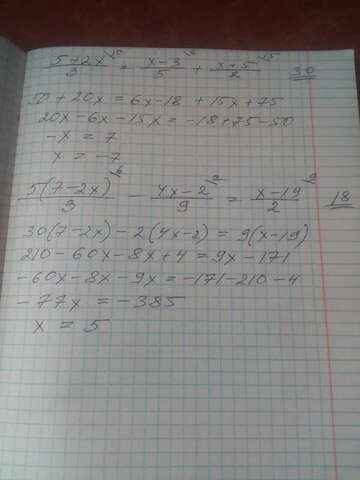 (5+2x)/3 \10 = (x-3)/5 \6 + (x+5)/2 \15 30
50 + 20x = 6x-18 + 15x + 75
20x - 6x - 15x = -18+75-50
-x = 7
x = -7
5(7-2x)/3 \6 - (4x-2)/9 \2 = (x-19)/2 \9 18
30(7-2x) - 2(4x-2) = 9(x-19)
210 - 60x - 8x + 4 = 9x - 171
-60x - 8x - 9x = -171-210-4
-77x = -385
x = 5